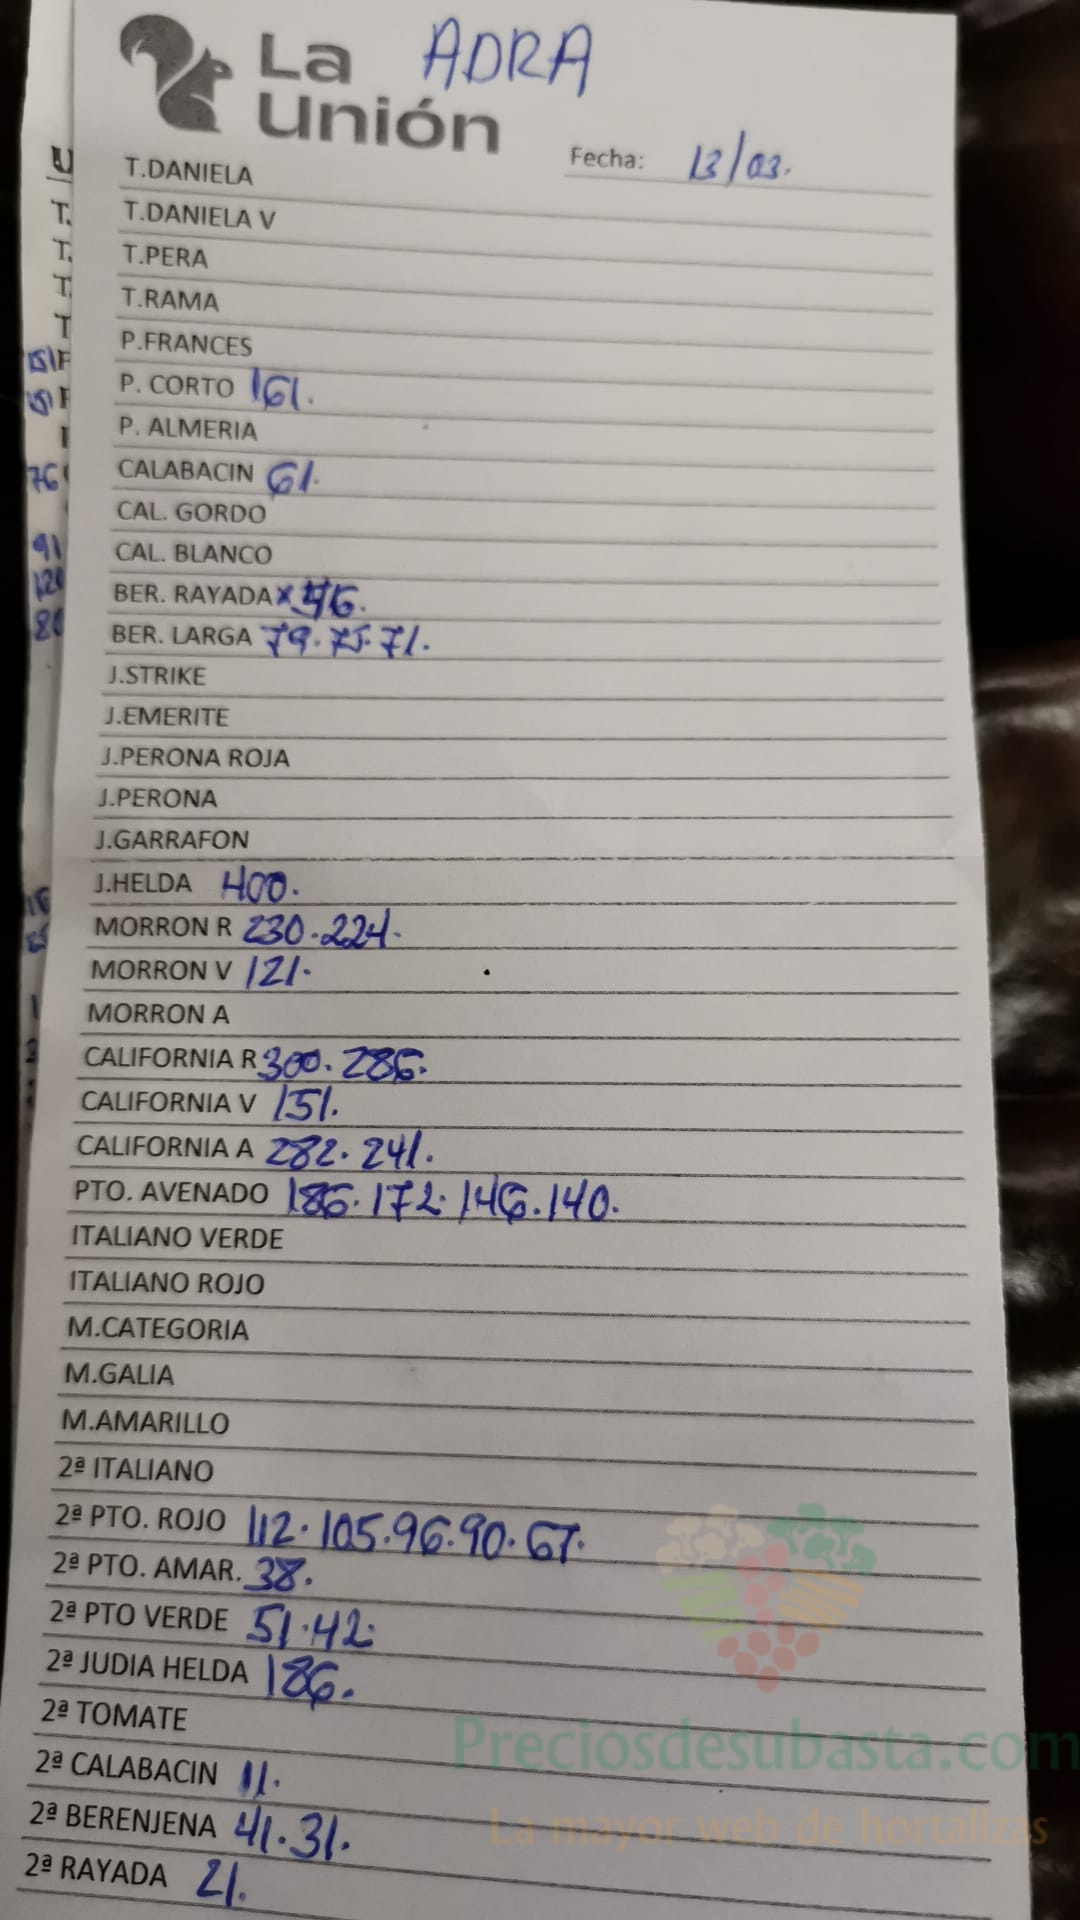 La Unión ADRA
Fecha: 13/03.
T.DANIELA
T.DANIELA V
T.PERA
T.RAMA
P.FRANCES
P. CORTO 161.
P. ALMERIA
CALABACIN 61.
CAL. GORDO
CAL. BLANCO
BER. RAYADA
BER. LARGA 79. 75. 71.
J.STRIKE
J.EMERITE
J.PERONA ROJA
J.PERONA
J.GARRAFON
J.HELDA 400.
MORRON R 230. 224.
MORRON V 121.
MORRON A
CALIFORNIA R 300. 286.
CALIFORNIA V 151.
CALIFORNIA A 282. 241.
PTO. AVENADO 186. 172. 146. 140.
ITALIANO VERDE
ITALIANO ROJO
M.CATEGORIA
M.GALIA
M.AMARILLO
2ª ITALIANO
2ª PTO. ROJO 112. 105. 96. 90. 67.
2ª PTO. AMAR. 38.
2ª PTO VERDE 51. 42.
2ª JUDIA HELDA 186.
2ª TOMATE
2ª CALABACIN 11.
2ª BERENJENA 41. 31.
2ª RAYADA 21.
Preciosdesubasta.com
La mayor web de hortalizas